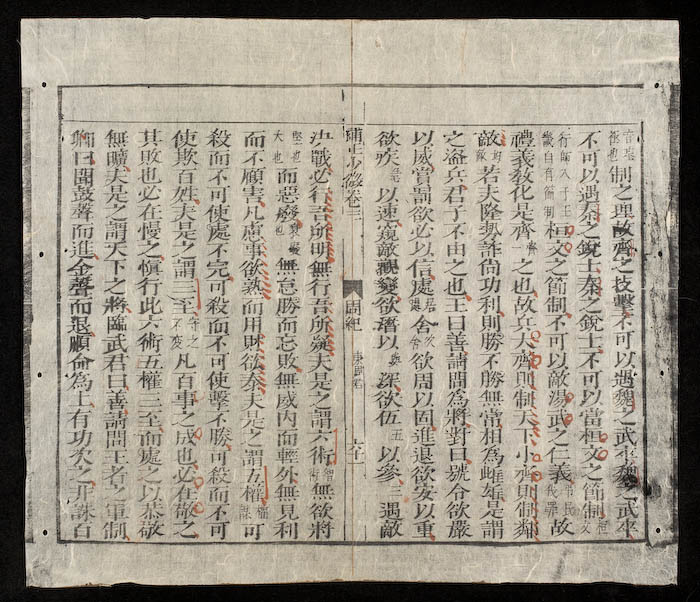 制之理故齊之技擊不可以遇魏之武卒魏之武卒
不可以遇秦之銳士秦之銳士不可以當桓文之節制
桓文之節制不可以敵湯武之仁義故
禮義教化是齊之也故兵大齊則制天下小齊則制鄰
敵若夫隆勢詐尚功利則勝不勝無常相為雌雄是謂
之盜兵君子不由之也王曰善請問為將對曰號令欲嚴
以威賞罰欲必以信處舍欲周以固進退欲安以重
欲疾以速窺敵觀變欲潛以深欲伍以參遇敵
卷三 周紀
決戰必行吾所明無行吾所疑夫是之謂六術無欲將
而惡廢無怠勝而忘敗無威內而輕外無見利
而不顧害凡慮事欲熟而用財欲泰夫是之謂五權可
殺而不可使處不完可殺而不可使擊不勝可殺而不可
使欺百姓夫是之謂三至凡百事之成也必在敬之
其敗也必在慢之慎行此六術五權三至而處之以恭敬
無曠夫是之謂天下之將臨武君曰善請問王者之軍制
卿曰聞鼓聲而進金聲而退順命為上有功次之